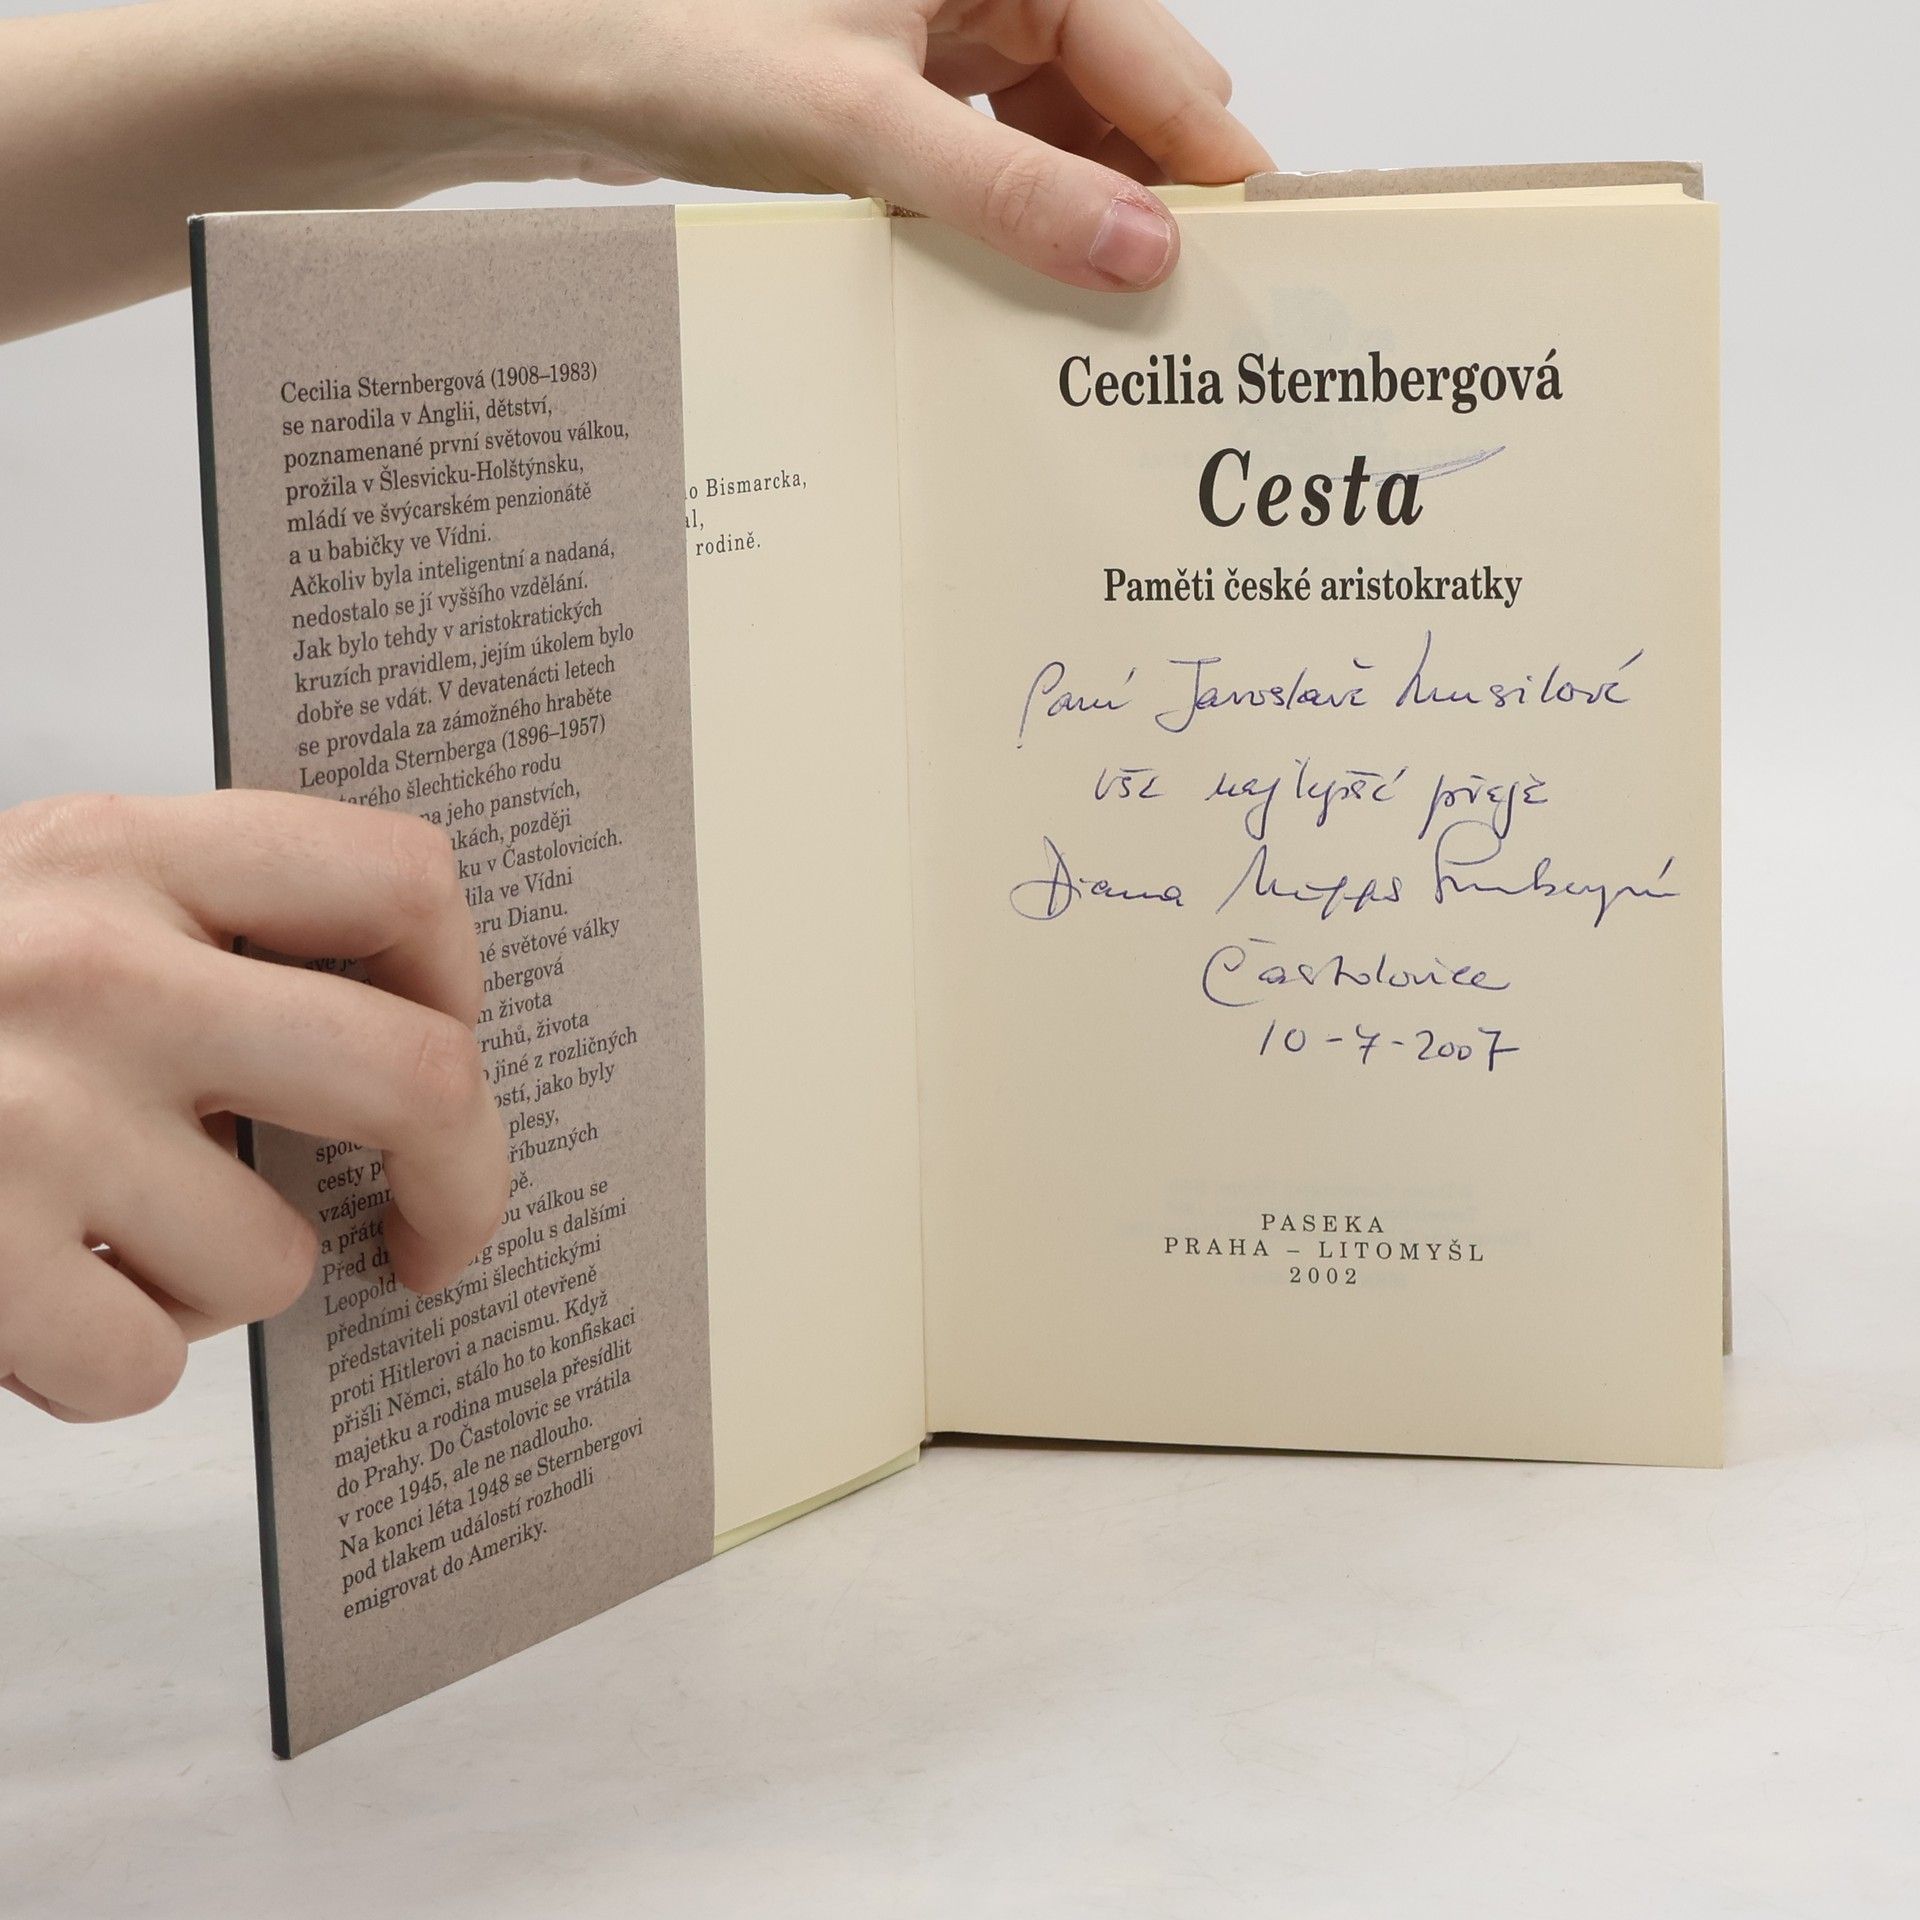 Cecilia Sternbergová (1908–1983)
se narodila v Anglii, dětství,
poznamenané první světovou válkou,
prožila v Šlesvicku-Holštýnsku,
mládí ve švýcarském penzionátě
a u babičky ve Vídni.
Ačkoliv byla inteligentní a nadaná,
nedostalo se jí vyššího vzdělání.
Jak bylo tehdy v aristokratických
kruzích pravidlem, jejím úkolem bylo
dobře se vdát. V devatenácti letech
se provdala za zámožného hraběte
Leopolda Sternberga (1896–1957)
šlechtického rodu
na jeho panstvích,
později
v Častolovicích.
ve Vídni
Dianu.
světové války
života
života
jiné z rozličných
jako byly
plesy,
cesty
a
válkou se
Před
Leopold spolu s dalšími
předními českými šlechtickými
představiteli postavil otevřeně
proti Hitlerovi a nacismu. Když
přišli Němci, stálo ho to konfiskaci
majetku a rodina musela přesídlit
do Prahy. Do Častolovic se vrátila
v roce 1945, ale ne nadlouho.
Na konci léta 1948 se Sternbergovi
pod tlakem událostí rozhodli
emigrovat do Ameriky.
Bismarcka,
rodině.
Cecilia Sternbergová
Cesta
Paměti české aristokratky
Paní Jaroslavě Musilové
vše nejlepší přeje
Diana Phipps Sternbergová
Častolovice
10-7-2007
PASEKA
PRAHA – LITOMYŠL
2002